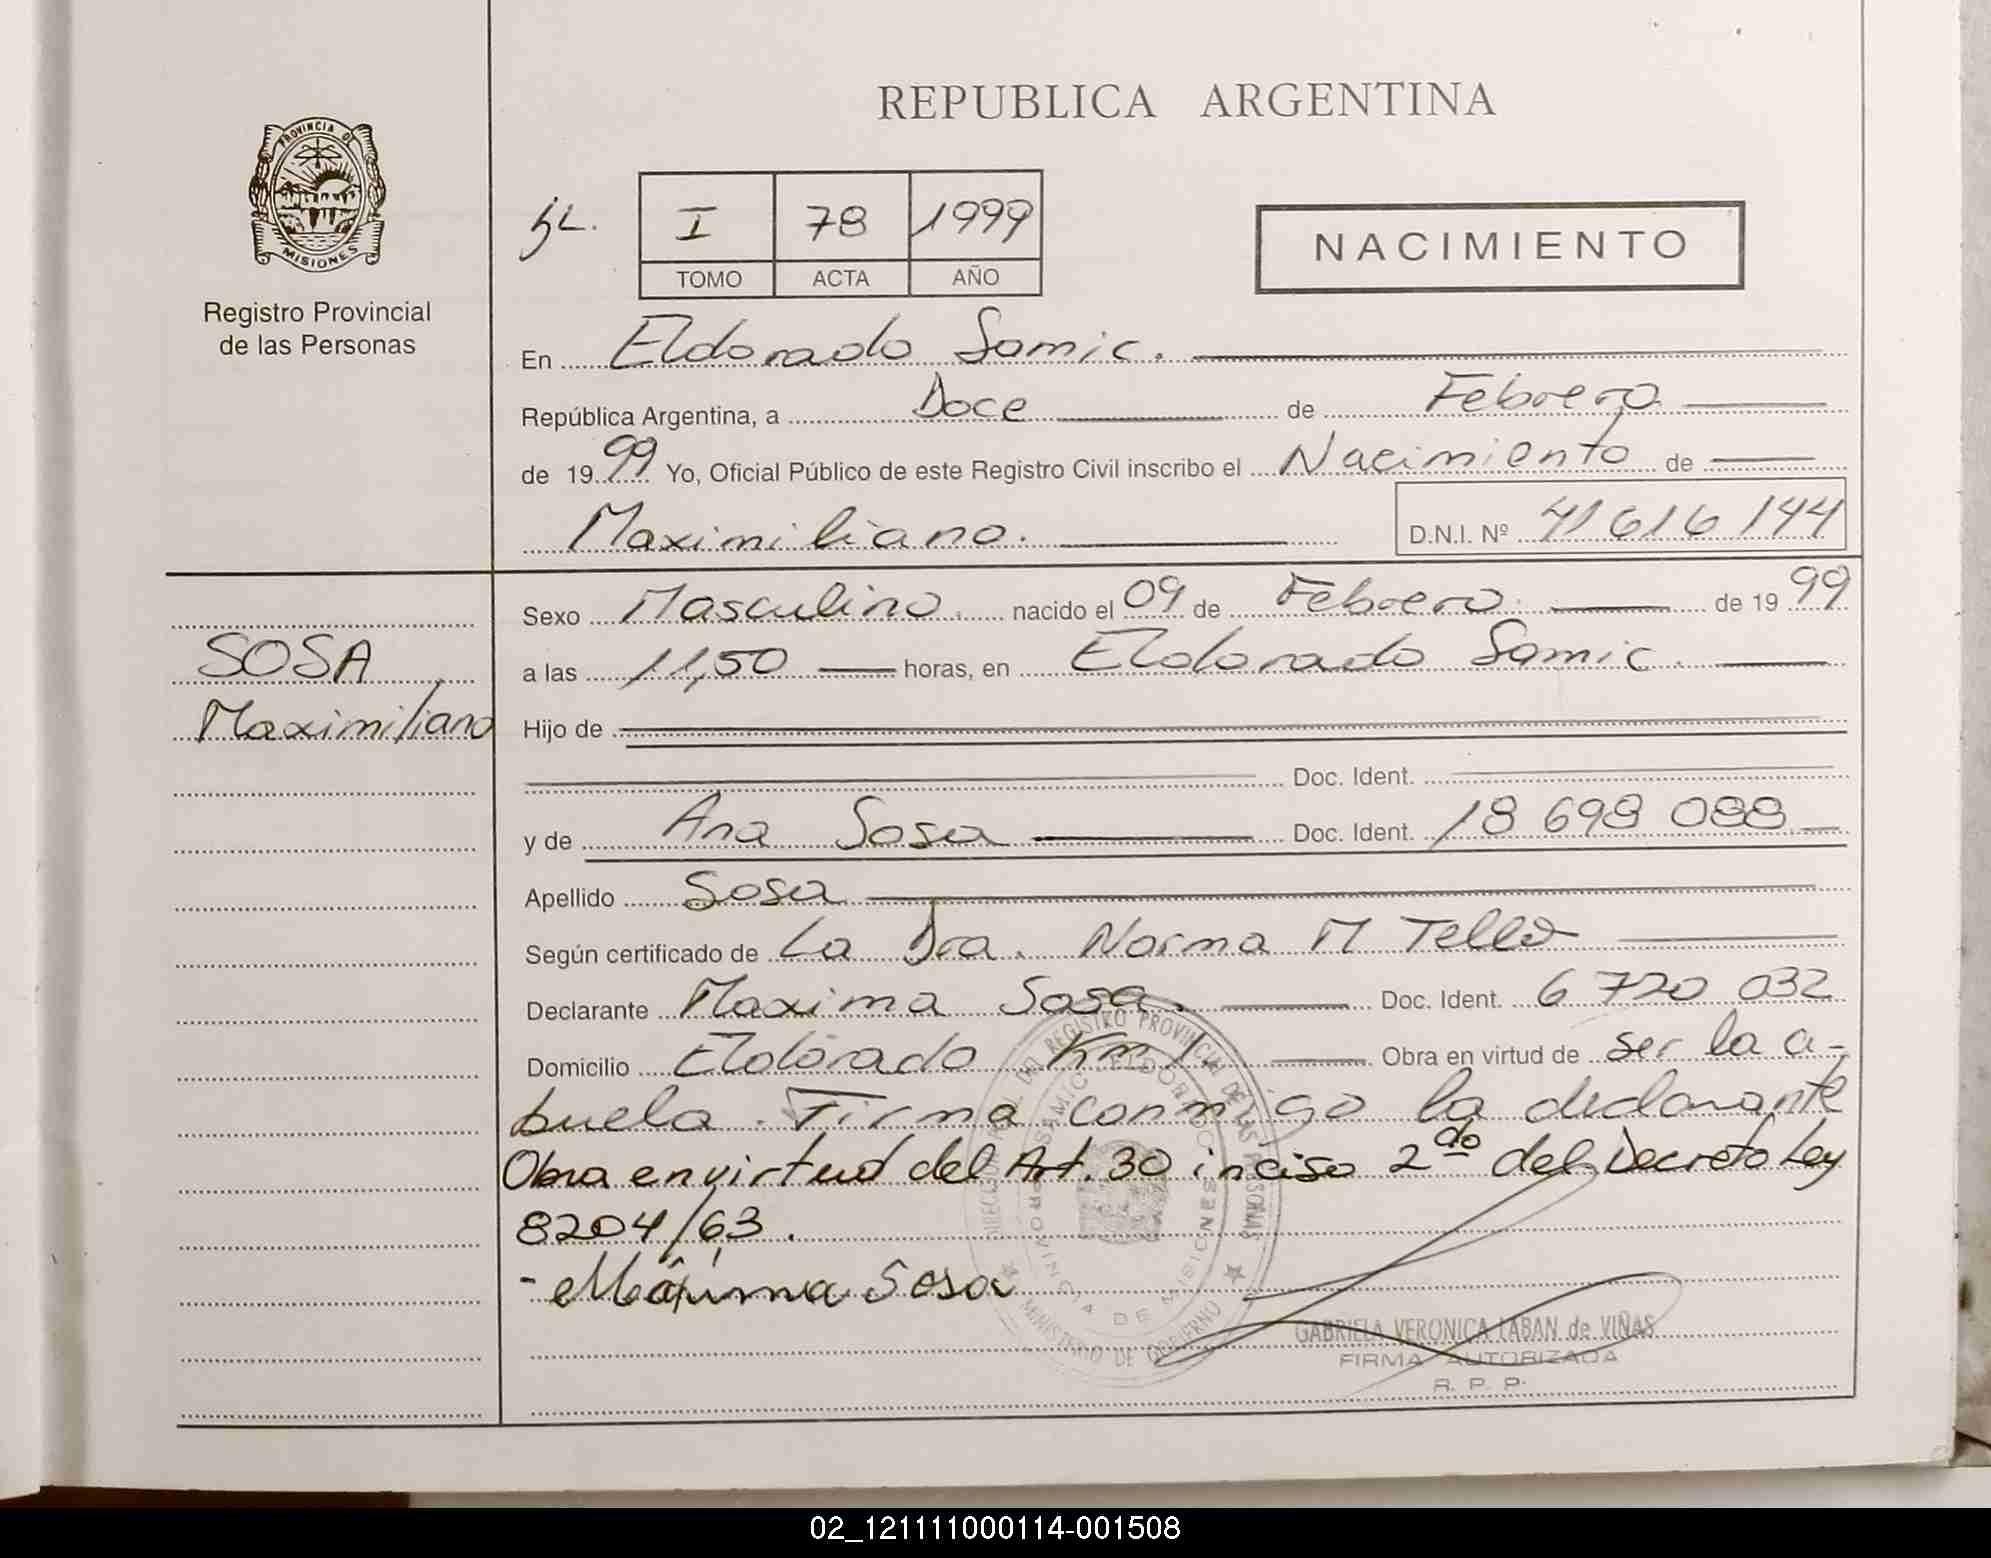 REPUBLICA ARGENTINA
PROVINCIA DE
MISIONES
Registro Provincial
de las Personas
I 78 1999
TOMO ACTA AÑO
NACIMIENTO
En Eldorado Samic.
República Argentina, a Doce de Febrero
de 1999 Yo, Oficial Público de este Registro Civil inscribo el Nacimiento de
Maximiliano. D.N.I. Nº 41 616 144
SOSA
Maximiliano
Sexo Masculino. nacido el 09 de Febrero. de 1999
a las 11,50 horas, en Eldorado Samic.
Hijo de
Doc. Ident.
y de Ana Sosa Doc. Ident. 18 698 088
Apellido Sosa
Según certificado de La Dra. Norma M Tello
Declarante Maxima Sosa. Doc. Ident. 6 720 032
Domicilio Eldorado Km Obra en virtud de ser la a-
buela. Firma conmigo la declarante
Obra en virtud del Art. 30 inciso 2do del Decreto Ley
8204/63.
- Máxima Sosa
GABRIELA VERONICA LABAN de VIÑAS
FIRMA AUTORIZADA
R. P. P.
DEL REGISTRO PROVINCIAL DE LAS PERSONAS
MINISTERIO DE GOBIERNO
SAMIC ELDORADO
PROVINCIA DE MISIONES
02_121111000114-001508